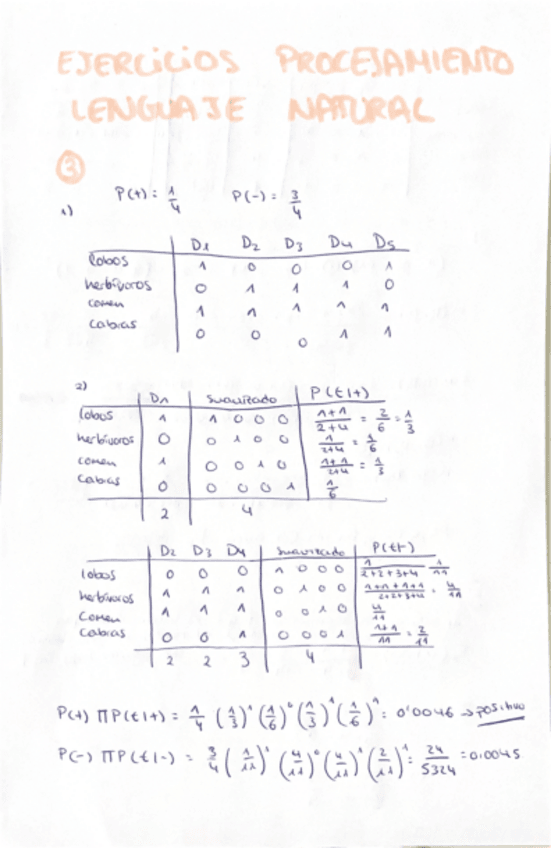 EJERCICIOS PROCESAMIENTO
LENGUAJE NATURAL
3
P(+) = 1/4 P(-) = 3/4
1)
D1 D2 D3 D4 D5
lobos 1 0 0 0 1
herbívoros 0 1 1 1 0
comen 1 1 1 1 1
cabras 0 0 0 1 1
2)
D1 suavizado P(t|+)
lobos 1 1 0 0 0 1+1/2+4 = 2/6 = 1/3
herbívoros 0 0 1 0 0 1/2+4 = 1/6
comen 1 0 0 1 0 1+1/2+4 = 1/3
cabras 0 0 0 0 1 1/6
2 4
D2 D3 D4 suavizado P(t|-)
lobos 0 0 0 1 0 0 0 1/2+2+3+4 = 1/11
herbívoros 1 1 1 0 1 0 0 1+1+1+1/2+2+3+4 = 4/11
comen 1 1 1 0 0 1 0 4/11
cabras 0 0 1 0 0 0 1 1+1/11 = 2/11
2 2 3 4
P(+) ΠP(t|+) = 1/4 (1/3)¹ (1/6)⁰ (1/3)¹ (1/6)¹ = 0'0046 → positivo
P(-) ΠP(t|-) = 3/4 (1/11)¹ (4/11)⁰ (4/11)¹ (2/11)¹ = 24/5324 = 0.0045